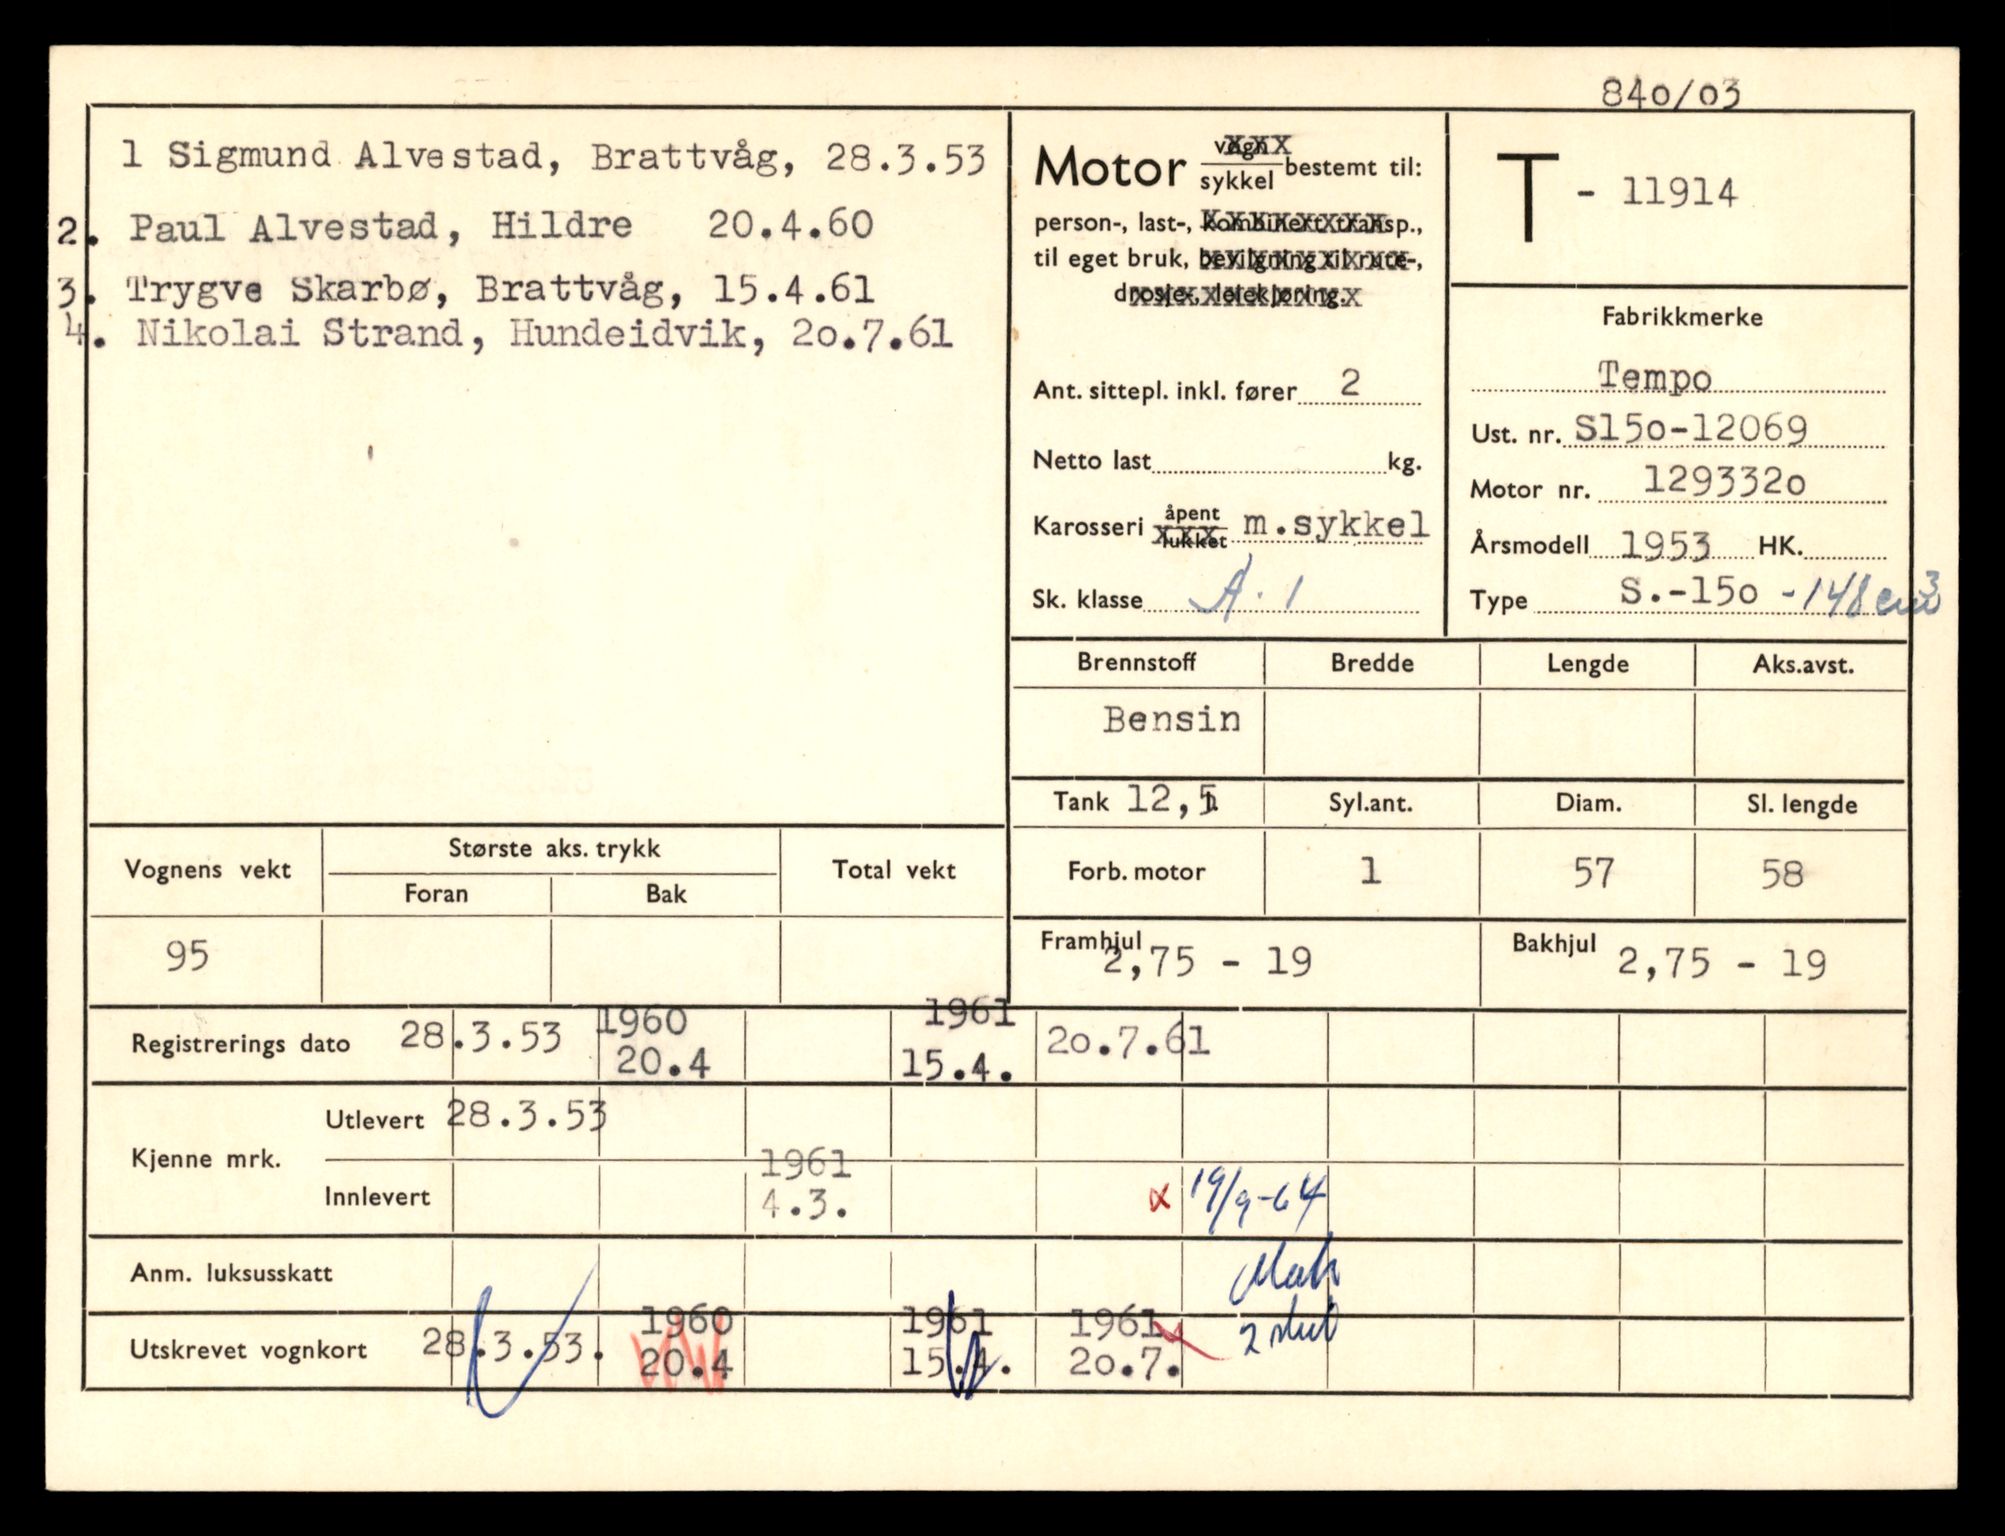 840/03
1 Sigmund Alvestad, Brattvåg, 28.3.53
2. Paul Alvestad, Hildre 20.4.60
3. Trygve Skarbø, Brattvåg, 15.4.61
4. Nikolai Strand, Hundeidvik, 2o.7.61
Motor vogn sykkel bestemt til:
person-, last-, kombinert transp.,
til eget bruk, bevilgning til rute-,
drosje-, leiekjøring.
Ant. sittepl. inkl. fører 2
Netto last kg.
Karosseri åpent lukket m.sykkel
Sk. klasse A. 1
T - 11914
Fabrikkmerke
Tempo
Ust. nr. S15o-12069
Motor nr. 129332o
Årsmodell 1953 HK.
Type S.-15o - 148 cm3
Brennstoff Bredde Lengde Aks.avst.
Bensin
Tank 12,5 Syl.ant. Diam. Sl. lengde
Forb. motor 1 57 58
Framhjul 2,75 - 19 Bakhjul 2,75 - 19
Vognens vekt Største aks. trykk Total vekt
Foran Bak
95
Registrerings dato 28.3.53 1960 20.4 1961 15.4. 2o.7.61
Kjenne mrk. Utlevert 28.3.53
Innlevert 1961 4.3. x 19/9-64
Anm. luksusskatt
Utskrevet vognkort 28.3.53. 1960 20.4 1961 15.4. 1961 2o.7.